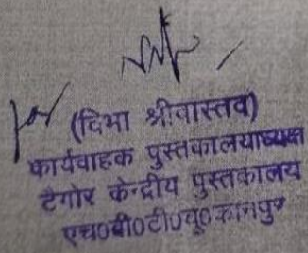 (विभा श्रीवास्तव)
कार्यवाहक पुस्तकालयाध्यक्ष
टैगोर केन्द्रीय पुस्तकालय
एच०बी०टी०यू०कानपुर